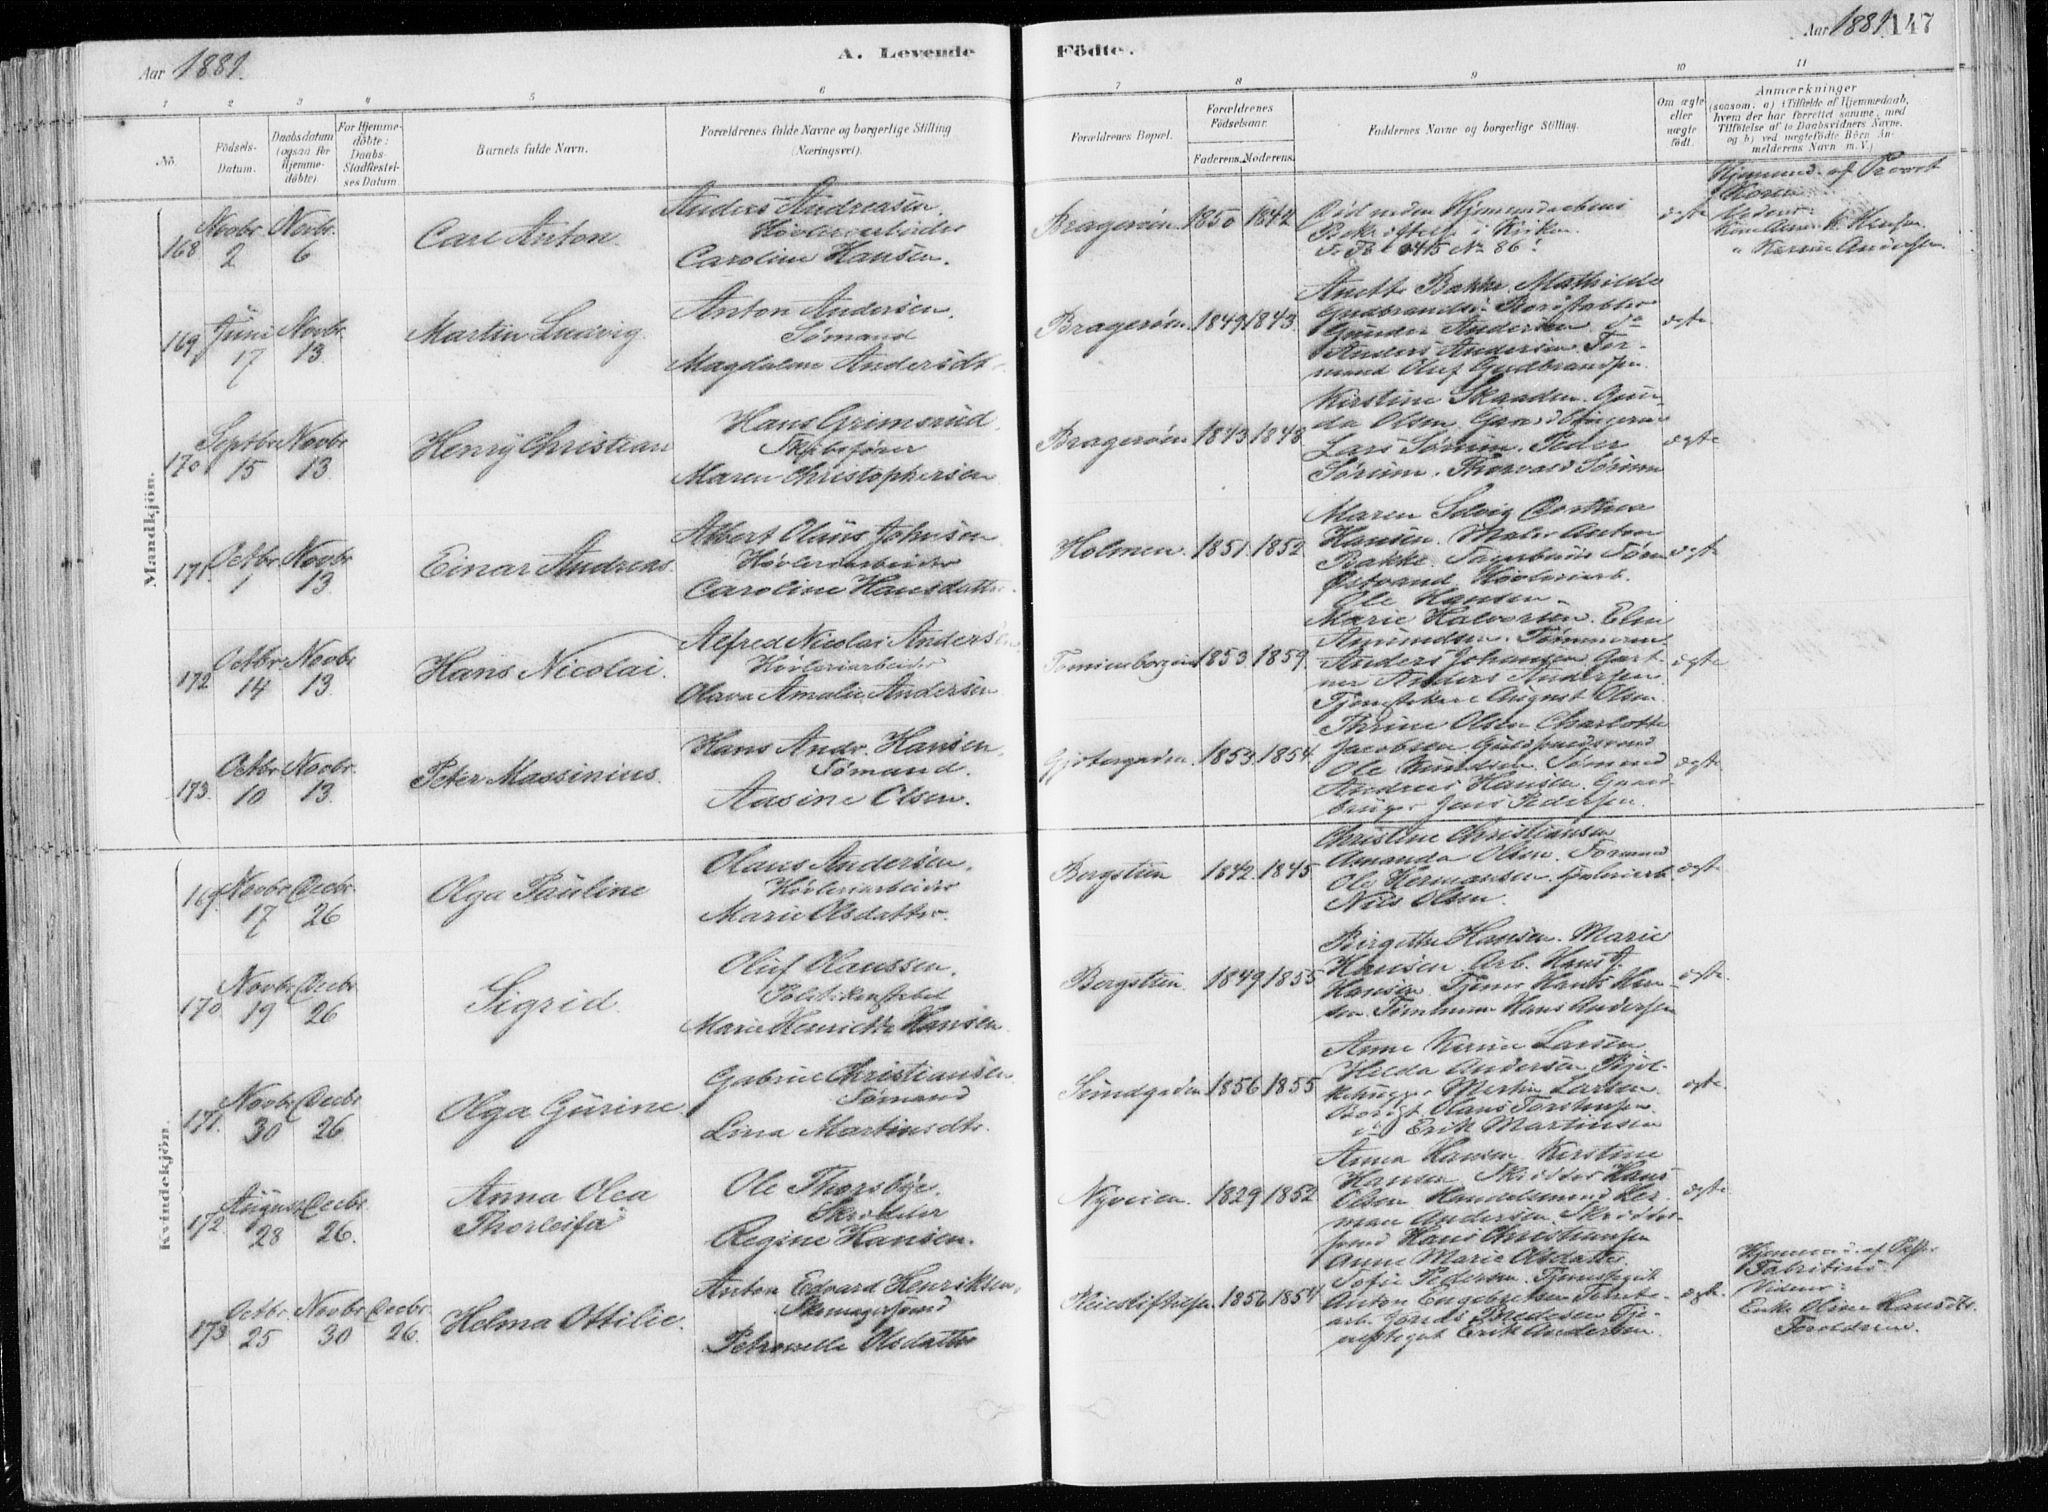 Aar 1881.
A. Levende
Födte.
Aar 1881.
147
1 2 3 4 5 6 7 8 9 10 11
No.
Födsels-
Datum.
Daabsdatum
(ogsaa for
Hjemme-
döbte).
For Hjemme-
döbte:
Daabs-
Stadfæstel-
ses Datum
Barnets fulde Navn.
Forældrenes fulde Navne og borgerlige Stilling
(Næringsvei).
Forældrenes Bopæl.
Forældrenes
Födselsaar.
Faderens. Moderens.
Faddernes Navne og borgerlige Stilling.
Om ægte
eller
uægte
født.
Anmærkninger
(saasom: a) i Tilfælde af Hjemmedaab,
hvem der har forrettet samme, med
Tilföielse af to Daabsvidners Navne.
og b) ved uægtefödte Börn An-
melderens Navn m. V.)
Mandkjön.
168 Novbr. 2 Novbr. 6
Carl Anton.
Anders Andreasen.
Høvleriarbeider
Caroline Hansen.
Bragerøen 1850 1842
i Kirken.
No 86.
ægte
Hjemmed. af
169 Juni 17 Novbr. 13
Martin Ludvig
Anton Andersen.
Sømand
Magdalene Andersdtr.
Bragerøen 1849 1843.
Anette Bakke. Mathilde
Gudbrandsen.
Gunder Andersen do
Anders Andersen. For-
mand Oluf Gudbrandsen
ægte
170 Septbr. 15 Novbr. 13
Henry Christian
Hans Grimsrud.
Skibsfører
Maren Christophersen
Bragerøen 1843 1848
Kirstine Skaaden. Gun-
da Olsen.
Lars Sørum. Peder
Sørum. Thorvald Sørum
ægte
171. Octbr. 1 Novbr. 13
Einar Andreas.
Albert Olaus Johnsen
Høvleriarbeider
Caroline Hansdatter.
Holmen. 1851. 1852.
Maren Solvig Dorthea
Hansen. Maler Anton
Bakke.
Østrand. Høvleriarb.
Ole Hansen.
ægte
172 Octbr. 14 Novbr. 13
Hans Nicolai.
Alfred Nicolai Andersen
Høvleriarbeider
Olava Amalie Andersen
1853 1859.
Marie Halvorsen. Elen
Amundsen. Tømmerm.
Anders Johansen. Gart-
ner Anders Andersen.
August Olsen.
ægte
173. Octbr. 10 Novbr. 13
Peter Massinius.
Hans Andr. Hansen.
Sømand.
Aasine Olsen.
1853. 1854
Thrine Olsen. Charlotte
Jacobsen.
Ole Knudsen. Sømand
Andreas Hansen. Gaard-
bruger Jens Pedersen.
ægte
Kvindekjön.
169. Novbr. 17 Decbr. 26
Olga Pauline
Olaus Andersen.
Høvleriarbeider
Marie Olsdatter.
Bergstien 1842. 1845
Christine Christiansen
Amanda Olsen. Formand
Ole Hermansen. Høvleriarb.
Nils Olsen.
ægte
170 Novbr. 19 Decbr. 26
Sigrid.
Oluf Olaussen.
Politikonstabel
Marie Henriette Hansen.
Bergstien. 1849 1855
Birgethe Hansen. Marie
Hansen. Arb. Hans J.
Hansen. Tjener Hans Han-
sen. Tømmerm. Hans Andersen
ægte.
171. Novbr. 30 Decbr. 26
Olga Gurine.
Gabriel Christiansen
Sømand
Lina Martinsdtr.
Sundgaden 1856 1855
Anne Karine Larsen
Hilda Andersen. Bjel-
kehugger Martin Larsen.
Olaus Torstensen.
do Erik Martinsen
ægte
172. August 28 Decbr. 26.
Anna Olea
Thorleifa
Ole Thorsbye.
Skrædder
Regine Hansen.
Nyveien. 1829 1852.
Anna Hansen. Kirstine
Hansen. Skrædder Hans
Olsen. Handelsmand Her-
man Andersen. Skrædder-
svend Hans Christiansen
ægte
173 Octbr. 25 Novbr. 30 Decbr. 26.
Helma Ottilie.
Anton Edvard Henriksen.
Skomagersvend
Petronelle Olsdatter
1856 1854
Anne Marie Olsdatter.
Sofie Pedersen. Tjenestegut
Anton Engebretsen.
arb. Bredesen. Tje-
nestegut Erik Andersen.
ægte.
Hjemmed. af
Fabritius
Vidner:
Enke Oline Hansdtr.
Forældrene.